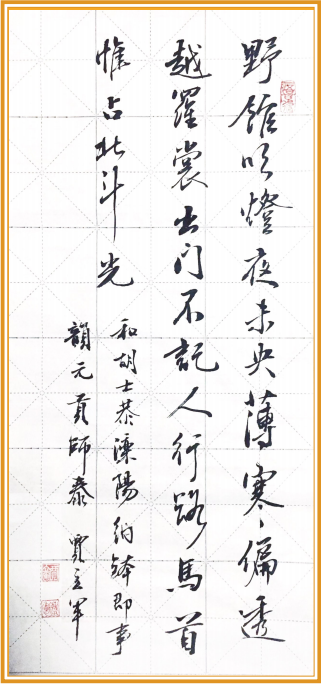 野館吹燈夜未央薄寒偏透
越羅裳出门不記人行路馬首
惟占北斗光
和胡士恭灤陽納鉢即事
韻元貢師泰